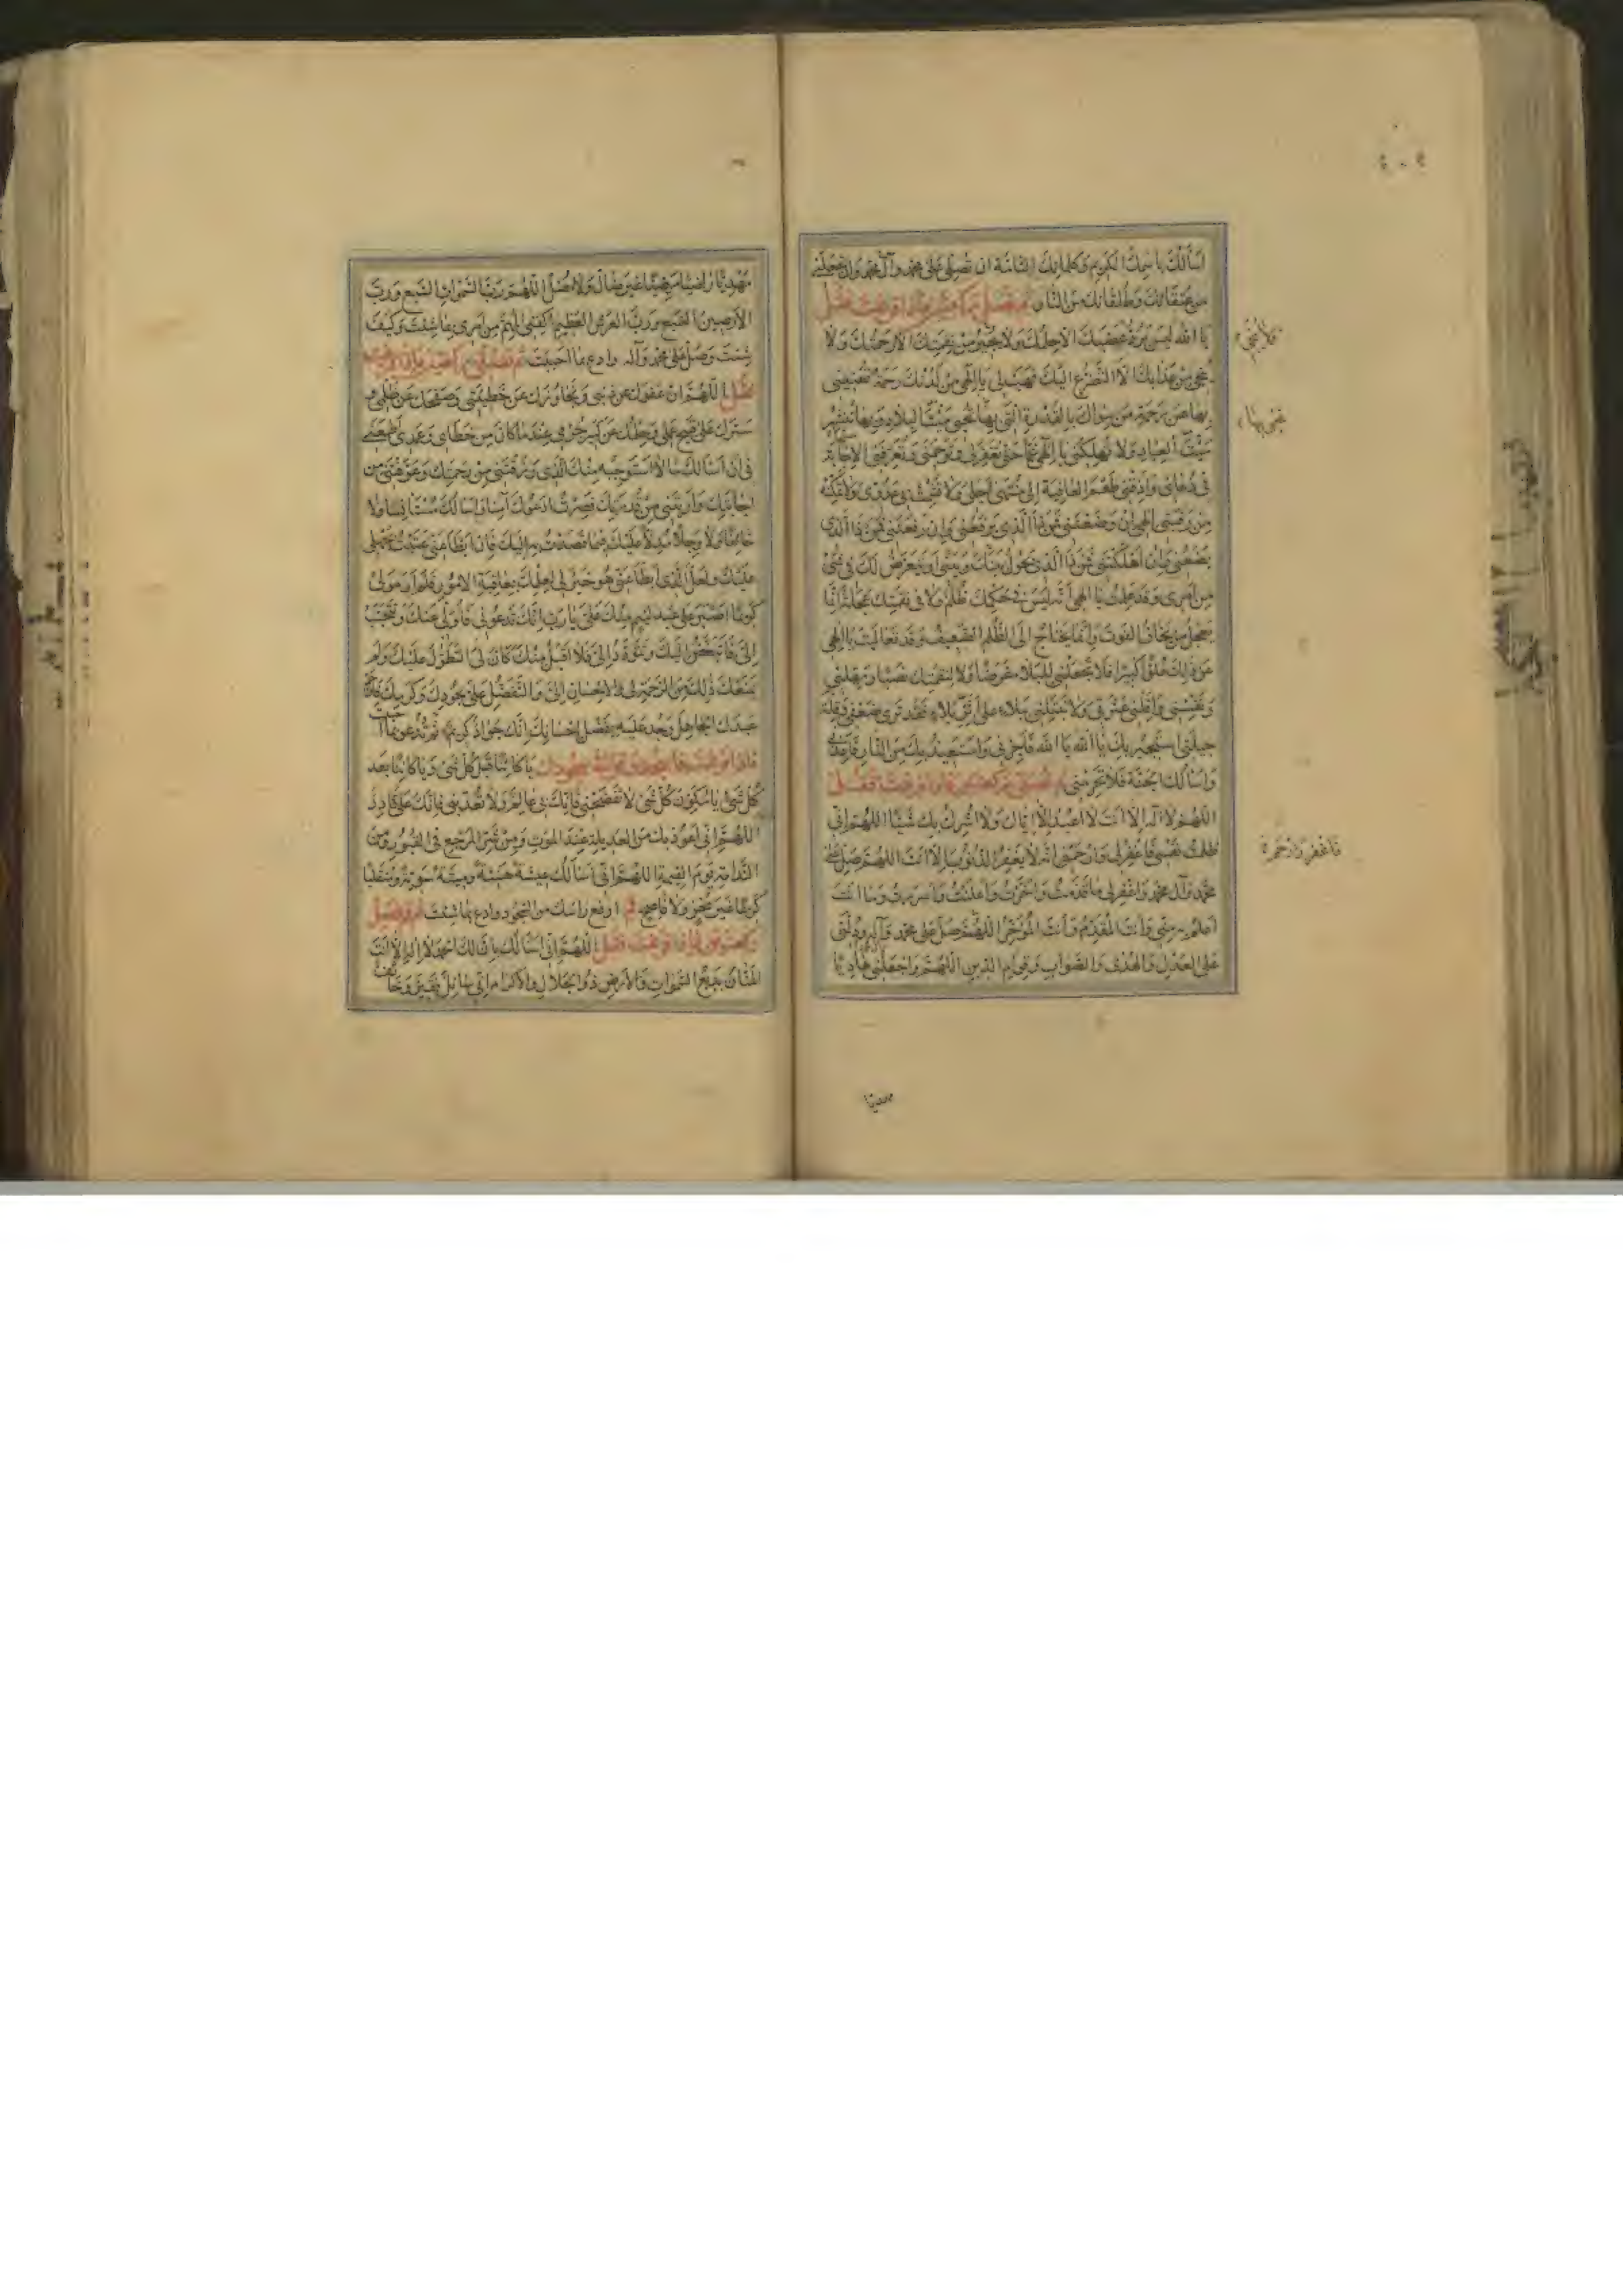 اسألك باسمك الكريم وكلماتك التامة ان تصلي على محمد وآل محمد وان تجعلني
من عتقائك وطلقائك من النار ثم تصلي ركعتين فاذا فرغت فقل
يا الله ليس يرد غضبك الا حلمك ولا يجير من نقمتك الا رحمتك ولا
ينجي من عذابك الا التضرع اليك فهب لي يا الهي من لدنك رحمة تغنيني
بها عن رحمة من سواك بالقدرة التي بها تحيي ميت البلاد وبها تنشر
ميت العباد ولا تهلكني يا الهي غما حتى تغفر لي وترحمني وتعرفني الاجابة
في دعائي واذقني طعم العافية الى منتهى اجلي ولا تشمت بي عدوي ولا تمكنه
من رقبتي الهي ان وضعتني فمن ذا الذي يرفعني وان رفعتني فمن ذا الذي
يضعني وان اهلكتني فمن ذا الذي يحول بينك وبيني او يتعرض لك في شيء
من امري وقد علمت يا الهي انه ليس في حكمك ظلم ولا في نقمتك عجلة انما
يعجل من يخاف الفوت وانما يحتاج الى الظلم الضعيف وقد تعاليت يا الهي
عن ذلك علوا كبيرا فلا تجعلني للبلاء غرضا ولا لنقمتك نصبا ومهلني
ونفسني واقلني عثرتي ولا تبتلني ببلاء على اثر بلاء فقد ترى ضعفي وقلة
حيلتي استجير بك يا الله يا الله فاجرني واستعيذ بك من النار فاعذني
واسألك الجنة فلا تحرمني ثم تصلي ركعتين فاذا فرغت فقل
اللهم لا اله الا انت لا اعبد الا اياك ولا اشرك بك شيئا اللهم اني
ظلمت نفسي فاغفر لي وارحمني انه لا يغفر الذنوب الا انت اللهم صل على
محمد وآل محمد واغفر لي ما قدمت واخرت واعلنت واسررت وما انت
اعلم به مني وانت المقدم وانت المؤخر اللهم صل على محمد وآله ودلني
على العدل والهدى والصواب وقوام الدين اللهم واجعلني هاديا
فاغفر وارحم
مهديا
مهديا راضيا مرضيا غير ضال ولا مضل اللهم رب السموات السبع ورب
الارضين السبع ورب العرش العظيم اكفني المهم من امري بما شئت وكيف
شئت وصل على محمد وآله وادع بما احببت ثم تصلي ركعتين فاذا فرغت
فقل اللهم ان عفوك عن ذنبي وتجاوزك عن خطيئتي وصفحك عن ظلمي و
سترك على قبيح عملي وحلمك عن كبير جرمي عند ما كان من خطاي وعمدي اطمعني
في ان اسألك ما لا استوجبه منك الذي رزقتني من رحمتك وعرفتني من
اجابتك واريتني من قدرتك فصرت ادعوك آمنا واسألك مستأنسا لا
خائفا ولا وجلا مدلا عليك فيما قصدت به اليك فان ابطأ عني عتبت بجهلي
عليك ولعل الذي ابطأ عني هو خير لي لعلمك بعاقبة الامور فلم ار مولى
كريما اصبر على عبد لئيم منك علي يا رب انك تدعوني فاولي عنك وتتحبب
الي فاتبغض اليك وتتودد الي فلا اقبل منك كان لي التطول عليك ولم
يمنعك ذلك من الرحمة لي والاحسان الي والتفضل علي بجودك وكرمك فارحم
عبدك الجاهل وجد عليه بفضل احسانك انك جواد كريم ثم تدعو بما احببت
فاذا فرغت من الدعاء فاسجد وقل في سجودك يا كائنا قبل كل شيء ويا كائنا بعد
كل شيء يا مكون كل شيء لا تفضحني فانك بي عالم ولا تعذبني فانك علي قادر
اللهم اني اعوذ بك من العديلة عند الموت ومن شر المرجع في القبور ومن
الندامة يوم القيمة اللهم اني اسألك عيشة هنيئة وميتة سوية ومنقلبا
كريما غير مخز ولا فاضح ثم ارفع راسك من السجود وادع بما شئت ثم تصلي
ركعتين فاذا فرغت فقل اللهم اني اسألك بان لك الحمد لا اله الا انت
المنان بديع السموات والارض ذو الجلال والاكرام اني سائل فقير وخائف